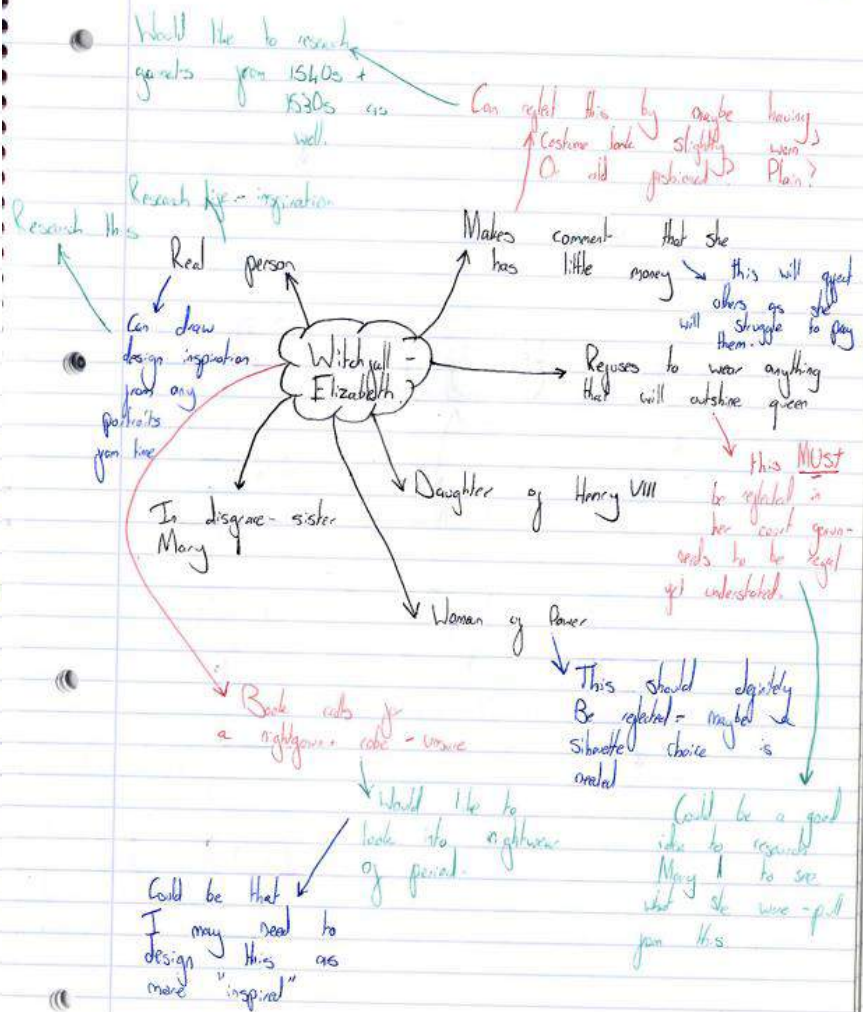 Would like to research
garments from 1540s +
1530s as
well.
Can reflect this by maybe having
Costume look slightly worn?
Or old fashioned? Plain?
Research this
Research life - inspiration
Real person
Can draw
design inspiration
from any
portraits
from time
Makes comment that she
has little money
this will affect
others as she
will struggle to pay
them.
Witchfall -
Elizabeth.
Refuses to wear anything
that will outshine queen
this MUST
be reflected in
her court gown -
needs to be regal
yet understated.
Daughter of Henry VIII
In disgrace - sister
Mary
Woman of Power
This should definitely
Be reflected - maybe a
Sihouette choice is
needed
Book calls for
a nightgown + robe - unsure
Would like to
look into nightwear
of period.
Could be that
I may need to
design this as
more "inspired"
Could be a good
idea to research
Mary I to see
what she wore - pull
from this.